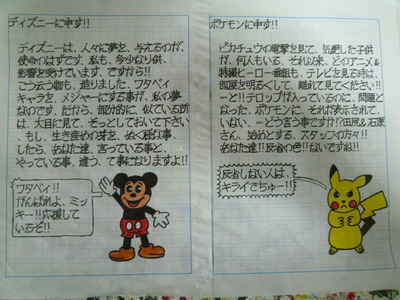 ディズニーに申す!!
ディズニーは、人々に夢を、与えるのが、
使命のはずです、私も、多少なり供、
影響を受けています、ですから!!
こう云う物も、造りました、ワタベイ
キャラを、メジャーにする事が、私の夢
なのです、だから、部分的に、似ている所
は、大目に見て、そっとしておいて下さい
、もし、生き産めの芽を、ぬく様な事
したら、あなた達、言っている事と、
やっている事、違う、て事になりますよ!!
ワタベイ!!
がんばれよ、ミッ
キー!!応援して
いるぞ!!
ポケモンに申す!!
ピカチュウの電撃を見て、気絶した子供
が、何人もいる、それ以来、どのアニメ&
特撮ヒーロー番組も、テレビを見る時は、
部屋を明るくして、離れて見てください!!
ーと!!テロップが入っているのに、問題と
なった、ポケモンに、それが表示されて
いない、ーどう言う事ですか!?田尻&石原
さん、始めとする、スタッフの方々!!
あなた達!!反省の色!!ないですね!!
反省しない人は、
キライでちゅー!!